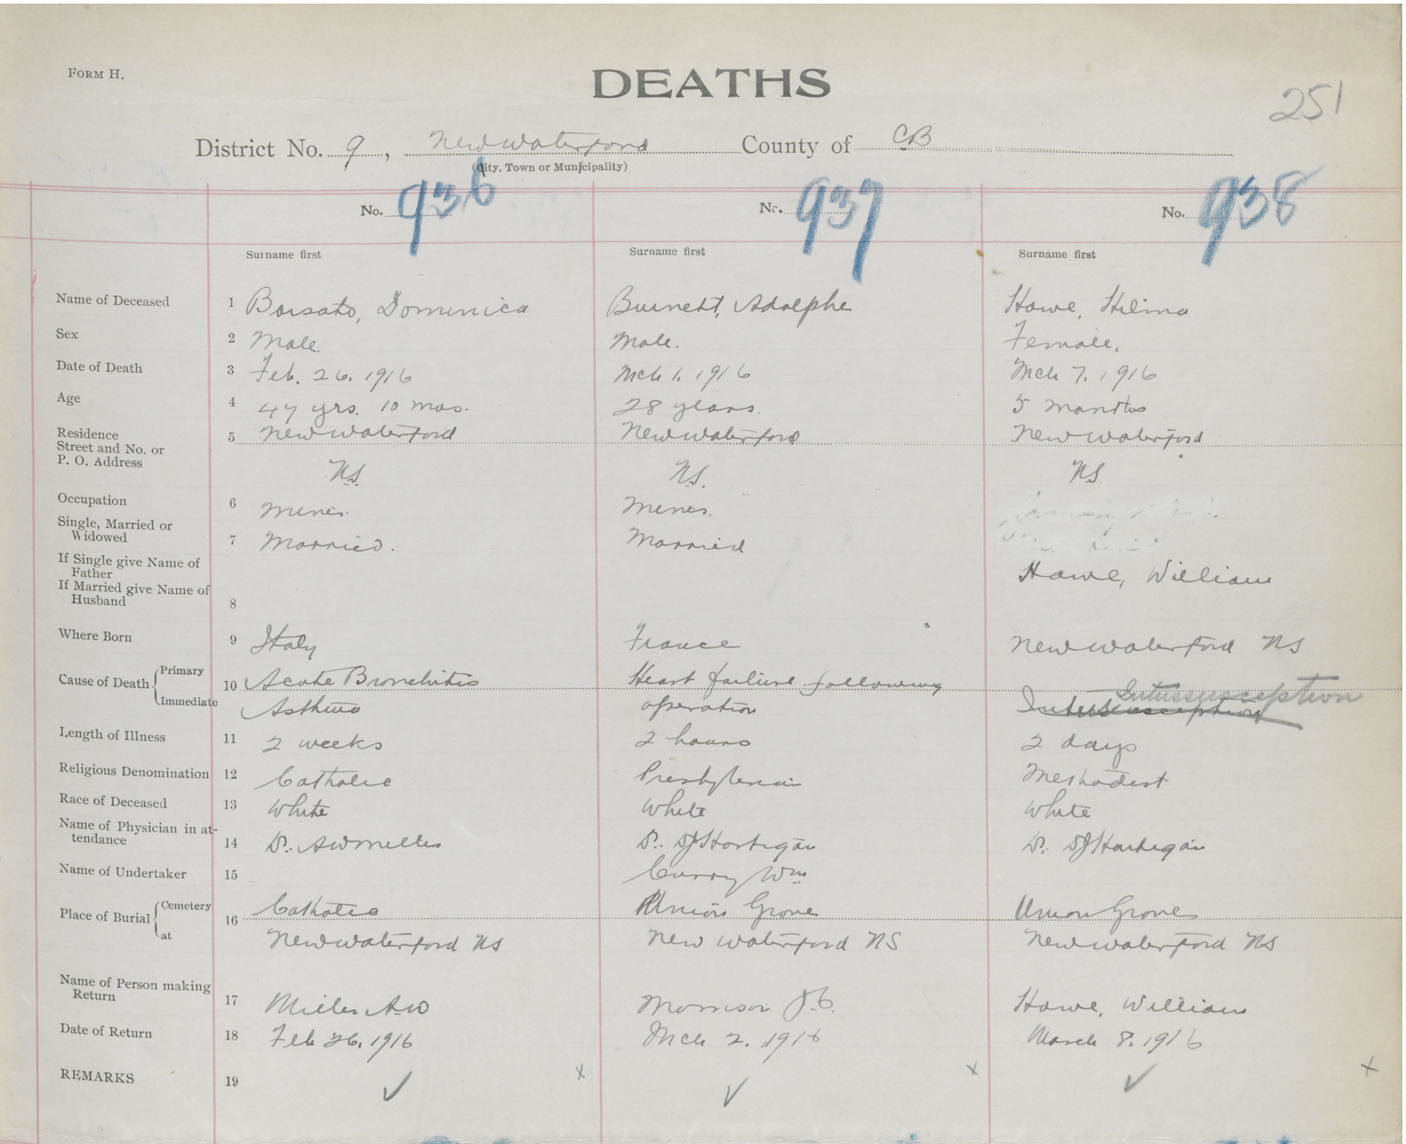 FORM H.
DEATHS
251
District No. 9, New Waterford County of CB
(City, Town or Municipality)
No. 936 No. 937 No. 938
Surname first Surname first Surname first
Name of Deceased 1 Borsato, Dominica Burnett, Adolphe Howe, Hilma
Sex 2 Male. Male. Female.
Date of Death 3 Feb. 26. 1916 Mch 1. 1916 Mch 7. 1916
Age 4 47 yrs. 10 mos. 28 years. 5 months
Residence
Street and No. or 5 New Waterford New Waterford New Waterford
P. O. Address NS. NS. NS.
Occupation 6 Miner. Miner.
Single, Married or
Widowed 7 Married. Married
If Single give Name of
Father Howe, William
If Married give Name of
Husband 8
Where Born 9 Italy France New Waterford NS
Cause of Death Primary 10 Acute Bronchitis Heart failure following Intussusception
Immediate Asthma operation Intussusception
Length of Illness 11 2 weeks 2 hours 2 days
Religious Denomination 12 Catholic Presbyterian Methodist
Race of Deceased 13 White White White
Name of Physician in at-
tendance 14 Dr. AW Miller Dr. DJ Hartigan Dr. DJ Hartigan
Name of Undertaker 15 Curry Wm
Place of Burial Cemetery 16 Catholic Union Grove Union Grove
at New Waterford NS New Waterford NS New Waterford NS
Name of Person making
Return 17 Miller AW Morrison J.C. Howe, William
Date of Return 18 Feb 26. 1916 Mch 2. 1916 March 8. 1916
REMARKS 19 ✓ x ✓ x ✓ x